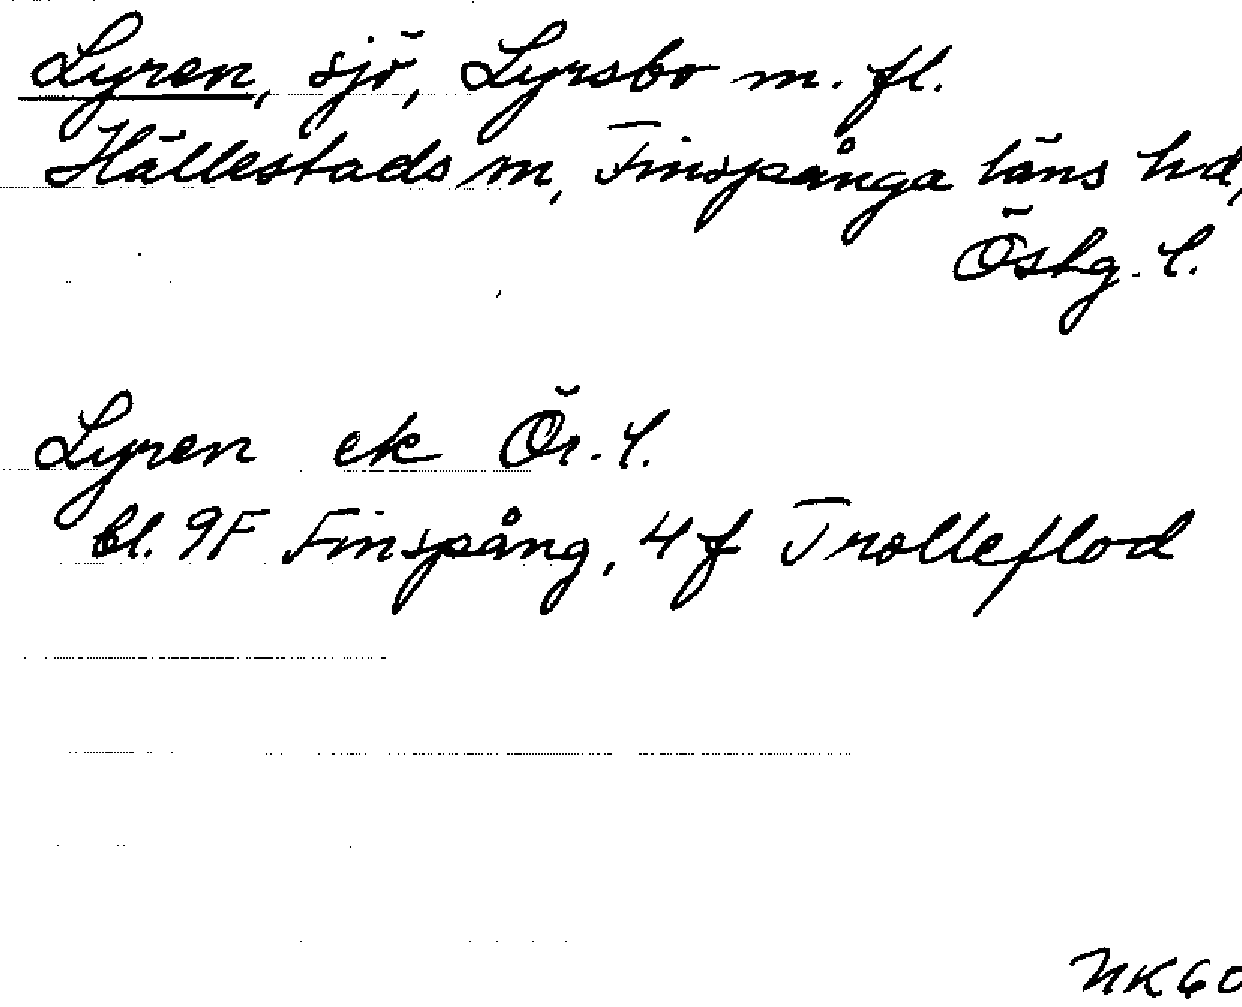 Lyren, sjö, Lyrsbo m. fl.
Hällestads sn, Finspånga läns hd,
Östg. l.
Lyren ek Ör. l.
bl. 9F Finspång, 4f Trolleflod
NK60